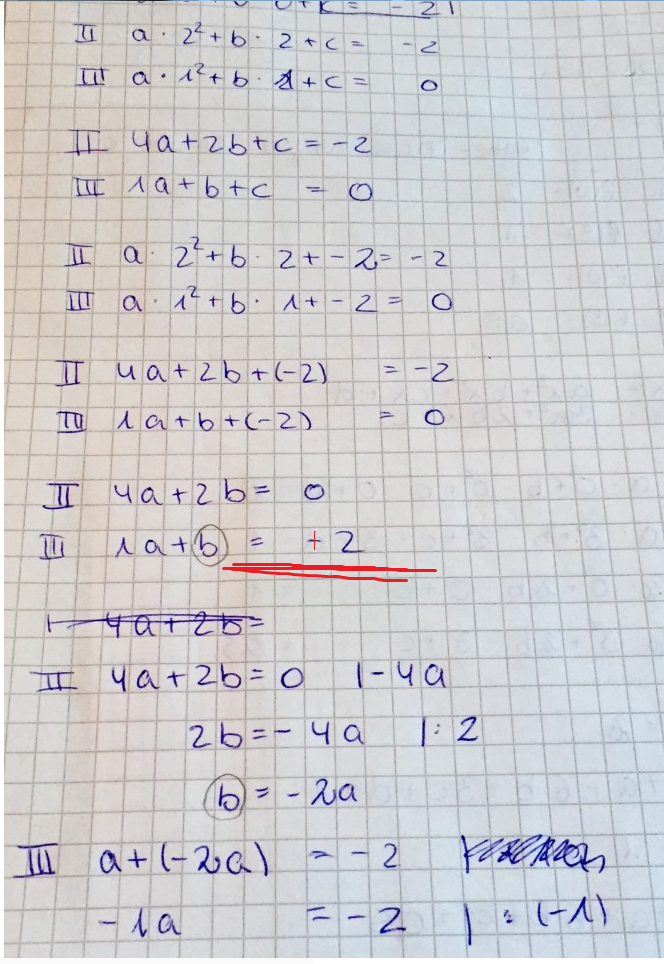 0+c = -2 |
II a · 2² + b · 2 + c = -2
III a · 1² + b · 1 + c = 0
II 4a + 2b + c = -2
III 1a + b + c = 0
II a · 2² + b · 2 + -2 = -2
III a · 1² + b · 1 + -2 = 0
II 4a + 2b + (-2) = -2
III 1a + b + (-2) = 0
II 4a + 2b = 0
III 1a + b = +2
4a + 2b =
II 4a + 2b = 0 | -4a
2b = -4a | : 2
b = -2a
III a + (-2a) = -2
-1a = -2 | : (-1)